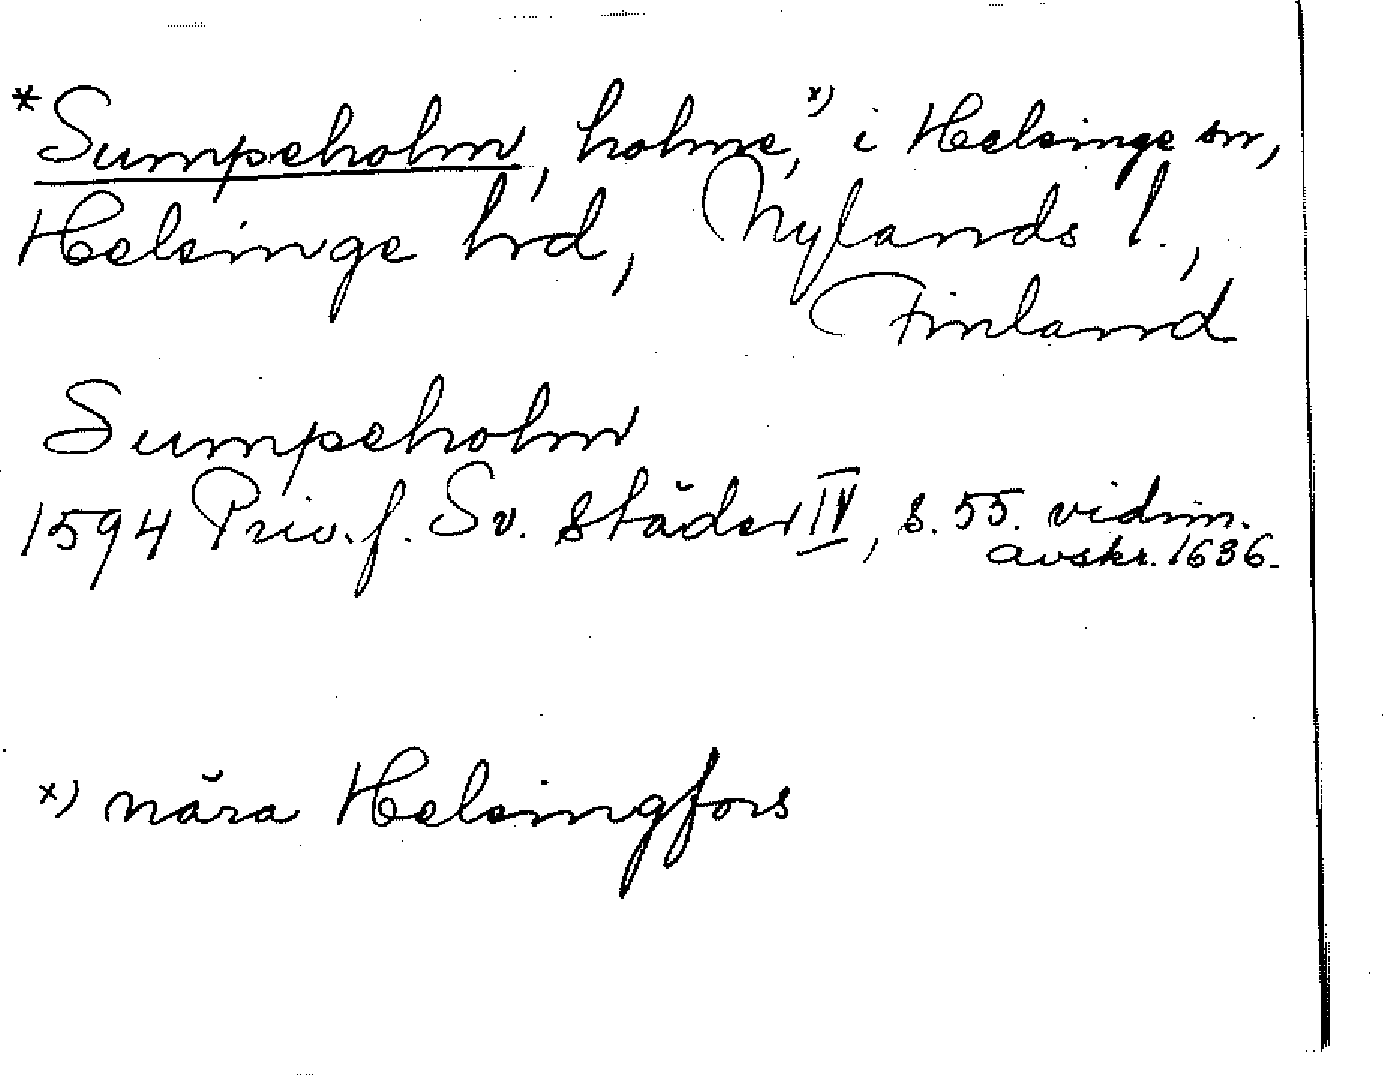 *Sumpeholm, holme,x) i Helsinge sn,
Helsinge hrd, Nylands l.,
Finland
Sumpeholm
1594 Priv. f. Sv. Städer IV, s. 55. vidim.
avskr. 1636.
x) nära Helsingfors